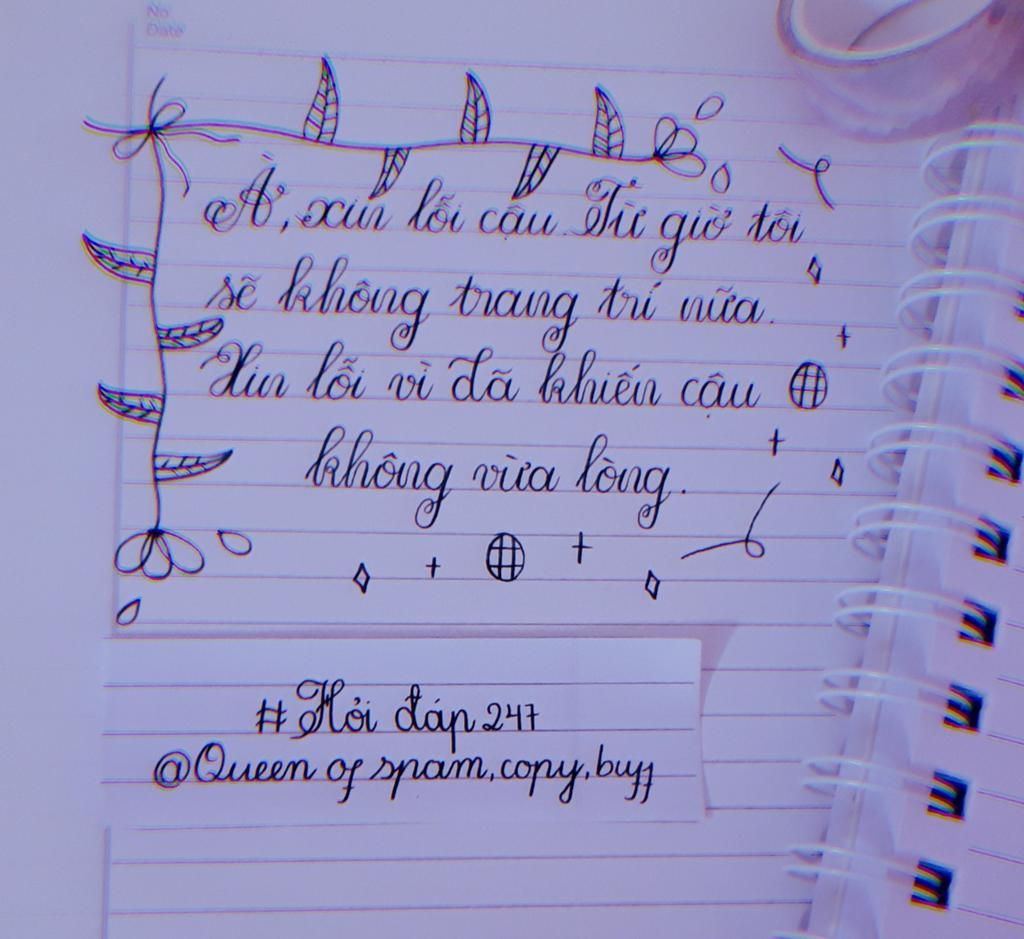 No
Date
À, xin lỗi cậu. Từ giờ tôi
sẽ không trang trí nữa.
Xin lỗi vì đã khiến cậu
không vừa lòng.
#Hỏi đáp 247
@Queen of spam, copy, buff